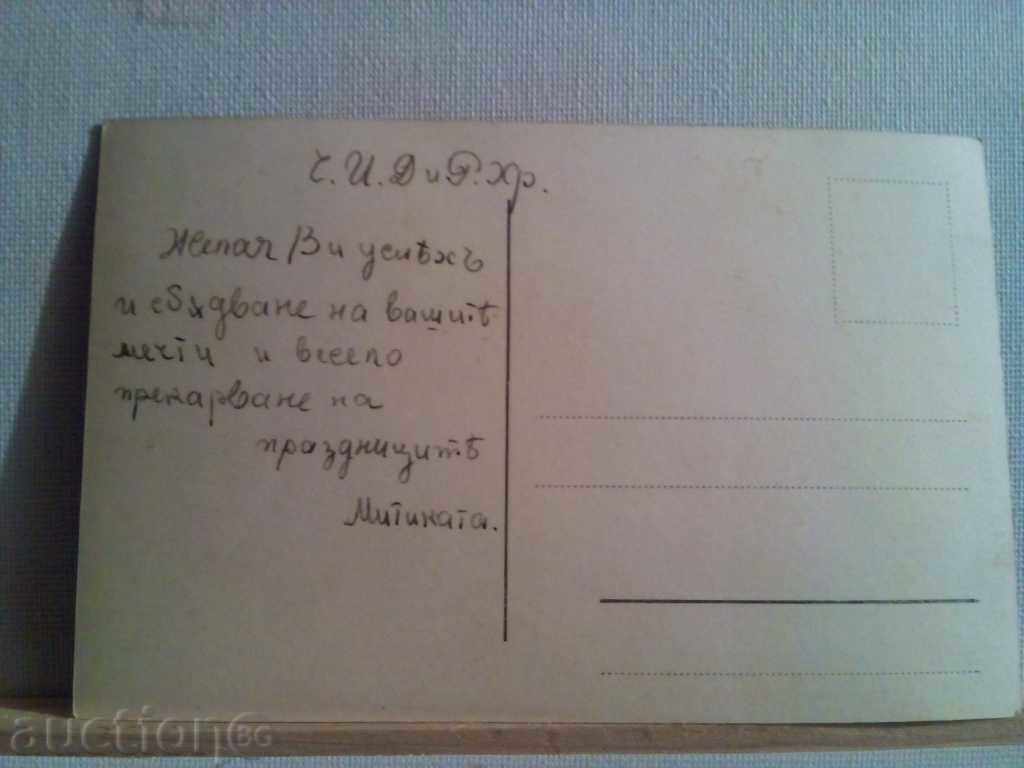 Ч. И. Д и Р. Хр.
Желая Ви успѣхъ
и сбѫдване на вашитѣ
мечти и весело
прекарване на
празницитѣ
Митината.
auction BG